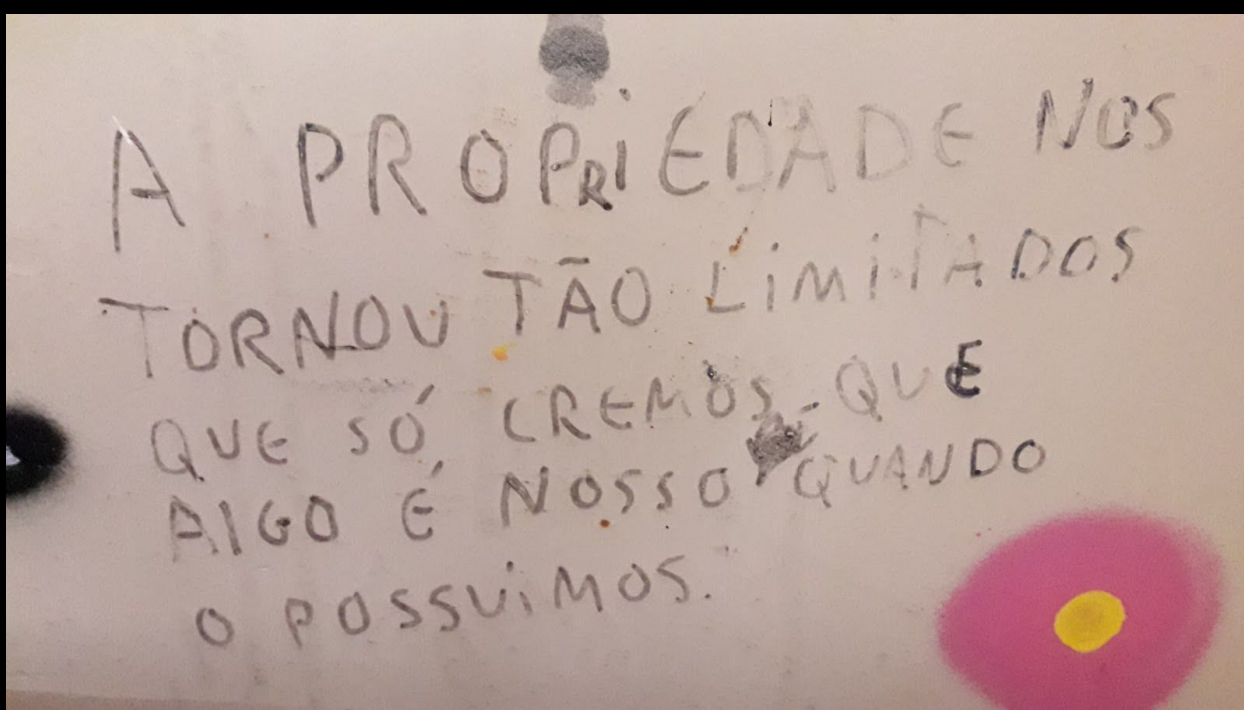 A PROPRiEDADE NOS
TORNOU TÃO LiMiTADOS
QUE SÓ CREMOS QUE
AlGO É NOSSO QUANDO
O POSSUiMOS.